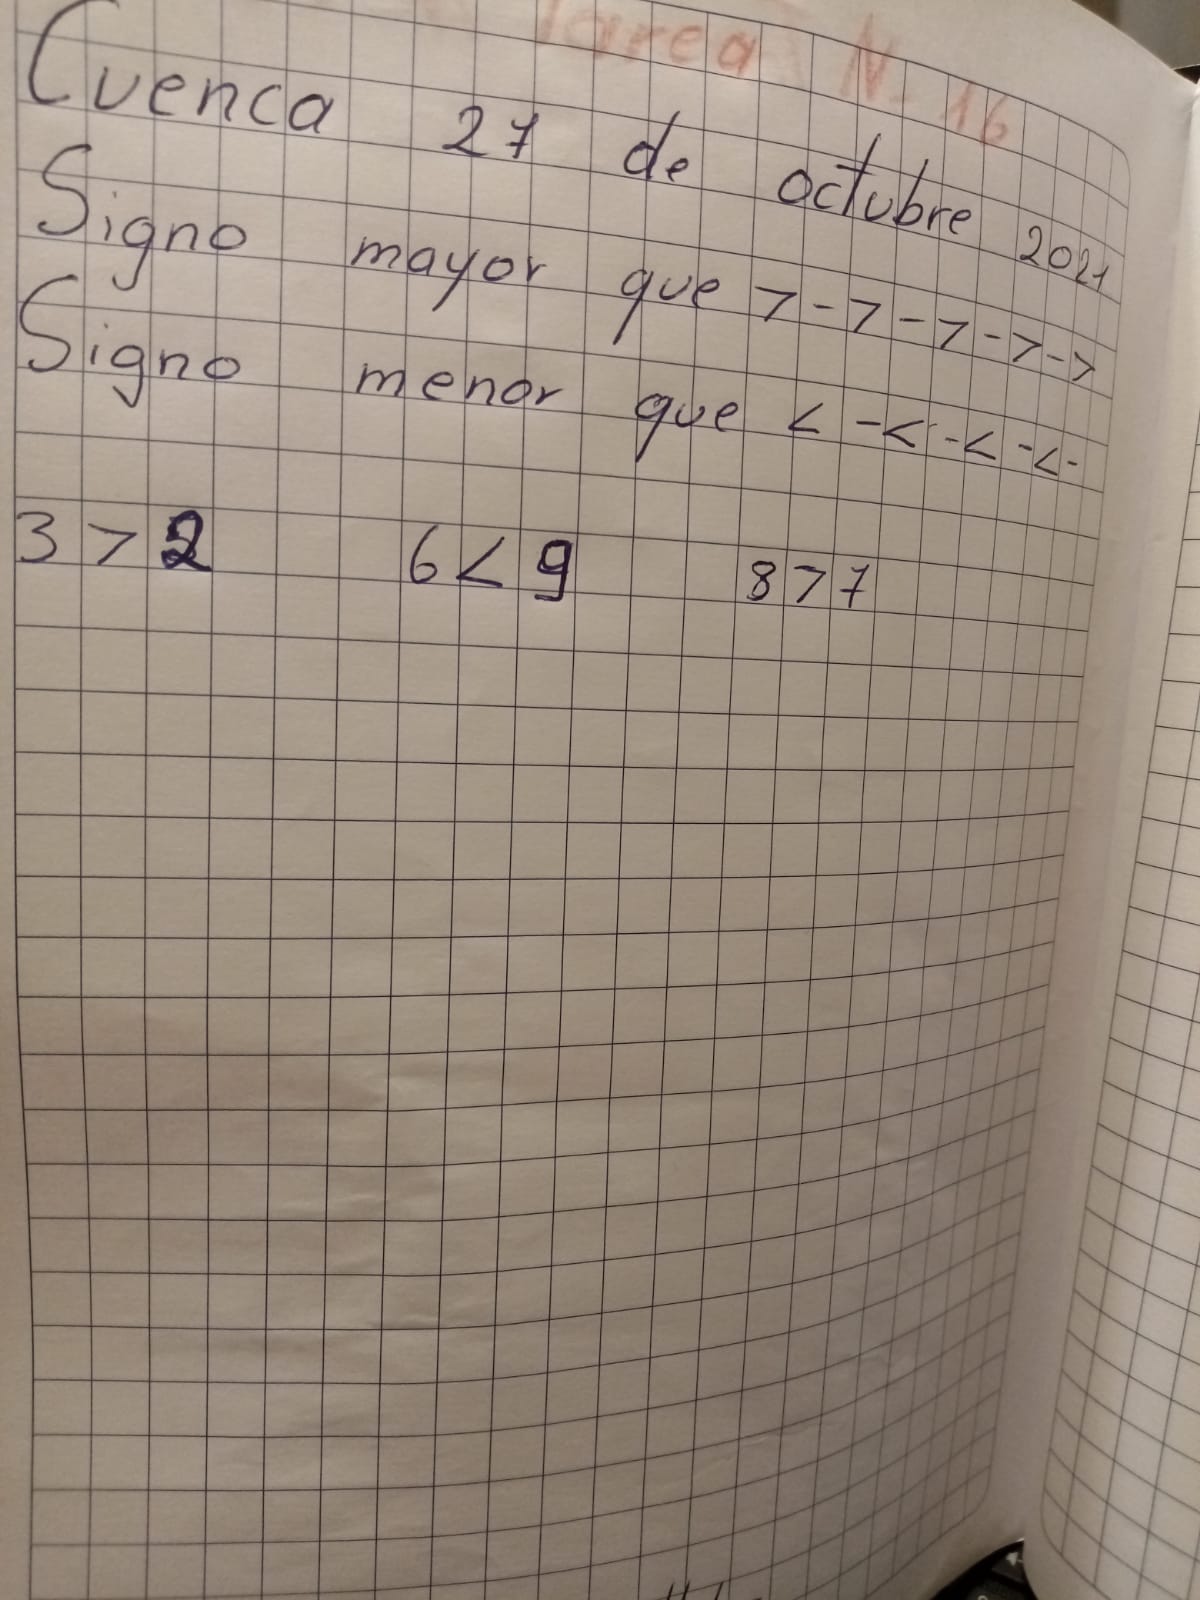 Tarea N- 16
Cuenca 27 de octubre 2021
Signo mayor que > - > - > - > - >
Signo menor que < - < - < - < -
3 > 2 6 < 9 8 > 7